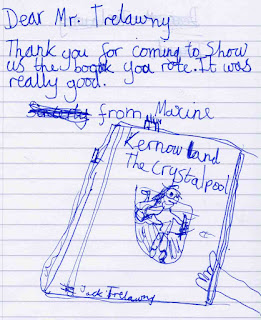 Dear Mr. Trelawny
Thank you for coming to show
us the book you rote. It was
really good.
from Maxine
Kernowland
The Crystal pool
Jack Trelawny